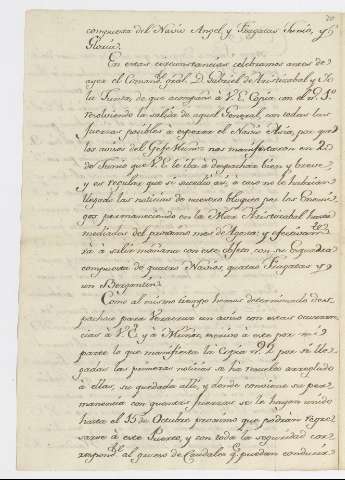 compuesta del Navio Angel, y Fragatas Juno, y
Gloria.
En estas circunstancias celebramos antes de
ayer el Comand.te gral. D. Gabriel de Aristizabal y Yo
la Junta, de que acompaño à V.E. Copia con el n.º 1.º
resolviendo la salida de aquel General, con todas las
fuerzas posibles à esperar el Navio Asia, por que
los avisos del Gefe Muñoz nos manifestaron en 20
de Junio que V.E. le iba à despachar bien y breve,
y es regular que si sucedio asi, ò caso no le hubieran
llegado las noticias de nuestro bloqueo por los Enemi-
gos permaneciendo en la Mar Aristizabal hasta
mediados del proximo mes de Agosto; y efectivam.te
và à salir mañana con este objeto con su Esquadra
compuesta de quatro Navios, quatro Fragatas, y
un Bergantin.
Como al mismo tiempo hemos determinado des-
pachar para Veracruz un aviso con estas ocurren-
cias à V.E. y à Muñoz, previno à este por mi
parte lo que manifiesta la Copia n.º 2 por si lle-
gadas las primeras noticias se ha resuelto arreglado
à ellas, su quedada alli, y donde conviene su per-
manencia con quantas fuerzas se le hayan unido
hasta el 15 de Octubre proximo que podràn regre-
sarse à este Puerto, y con toda la seguridad cor-
respond.te al grueso de Caudales q.e puedan conducir